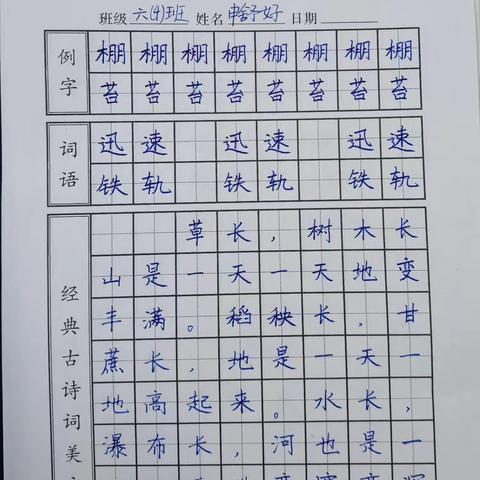 班级 六(4)班 姓名 申舒好 日期
例字
棚棚棚棚棚棚棚棚
苔苔苔苔苔苔苔苔
词语
迅速 迅速 迅速
铁轨 铁轨 铁轨
经典古诗词美
草长，树木长
山是一天一天地变
丰满。稻秧长，甘
蔗长，地是一天一
地高起来。水长，
瀑布长，河也是一